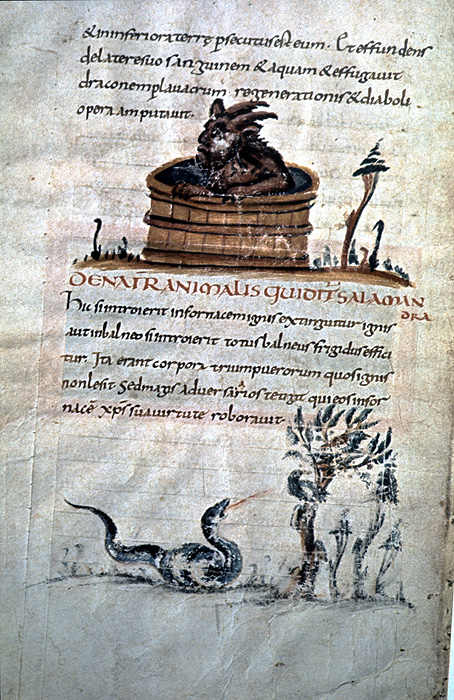 & in inferiora terrę psecutus est eum. Et effundens
de latere suo sanguinem & aquam & effugavit
draconem p lavacrum regenerationis & diaboli
opera amputavit.
DE NATR ANIMALIS QUI DIT SALAMAN
DRA
Hic si introierit in fornacem ignis extinguitur ignis
aut in balneo si introierit totus balneus frigidus effici
tur. Ita erant corpora trium puerorum quos ignis
non lesit sed magis adversarios tetigit qui eos in for
nacē xps sua virtute roboravit